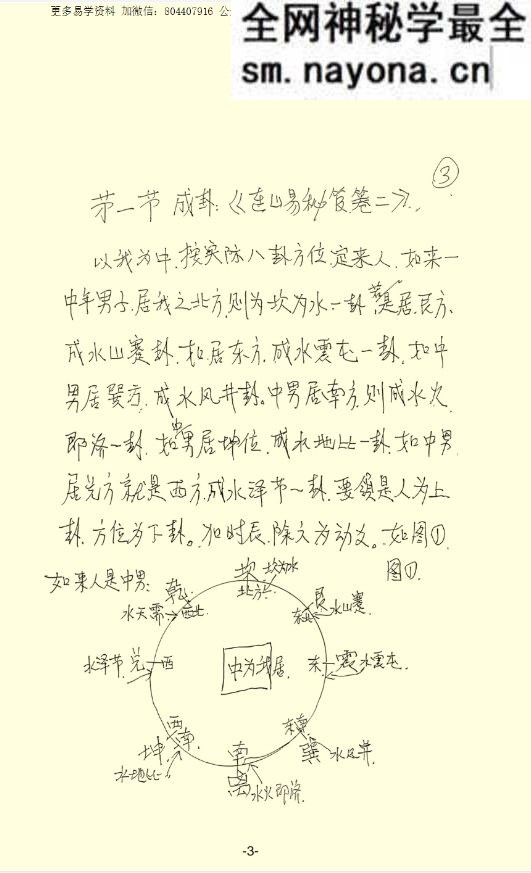 更多易学资料 加微信：804407916 公
全网神秘学最全
sm.nayona.cn
③
第一节 成卦:《连山易秘笈卷二》.
以我为中.按实际八卦方位.定来人.如来一
中年男子.居我之北方.则为坎为水一卦 若其居艮方、
成水山蹇卦.如居东方.成水雷屯一卦.如中
男居巽方.成水风井卦。中男居南方.则成水火
即济一卦.如中男居坤位.成水地比一卦.如中男
居兑方就是西方.成水泽节一卦.要领是人为上
卦.方位为下卦。加时辰.除六为动爻。如图①.
如来人是中男:
图①.
坎 坎为水
北方
乾
水天需 西北
艮
东北 水山蹇.
水泽节 兑一西
中为我居.
东一震水雷屯.
西南
坤
水地比
南
离 水火即济.
东南
巽 水风井.
-3-